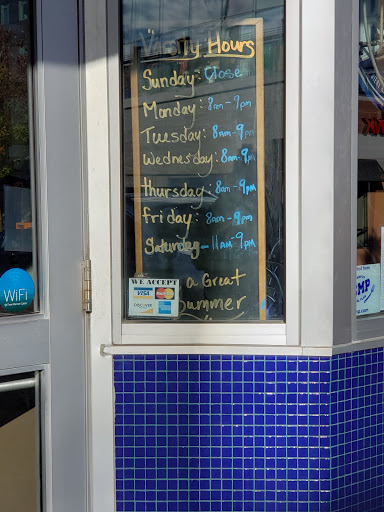 Hours
Sunday: Close
Monday: 8am-7pm
Tuesday: 8am-9pm
Wednesday: 8am-9pm
thursday: 8am-9pm
friday: 8am-9pm
Saturday-11AM-9pm
a Great
Summer
WE ACCEPT
VISA MasterCard
DISCOVER
WiFi